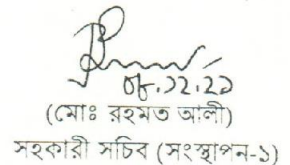 ০৮.১২.২১
(মোঃ রহমত আলী)
সহকারী সচিব (সংস্থাপন-১)